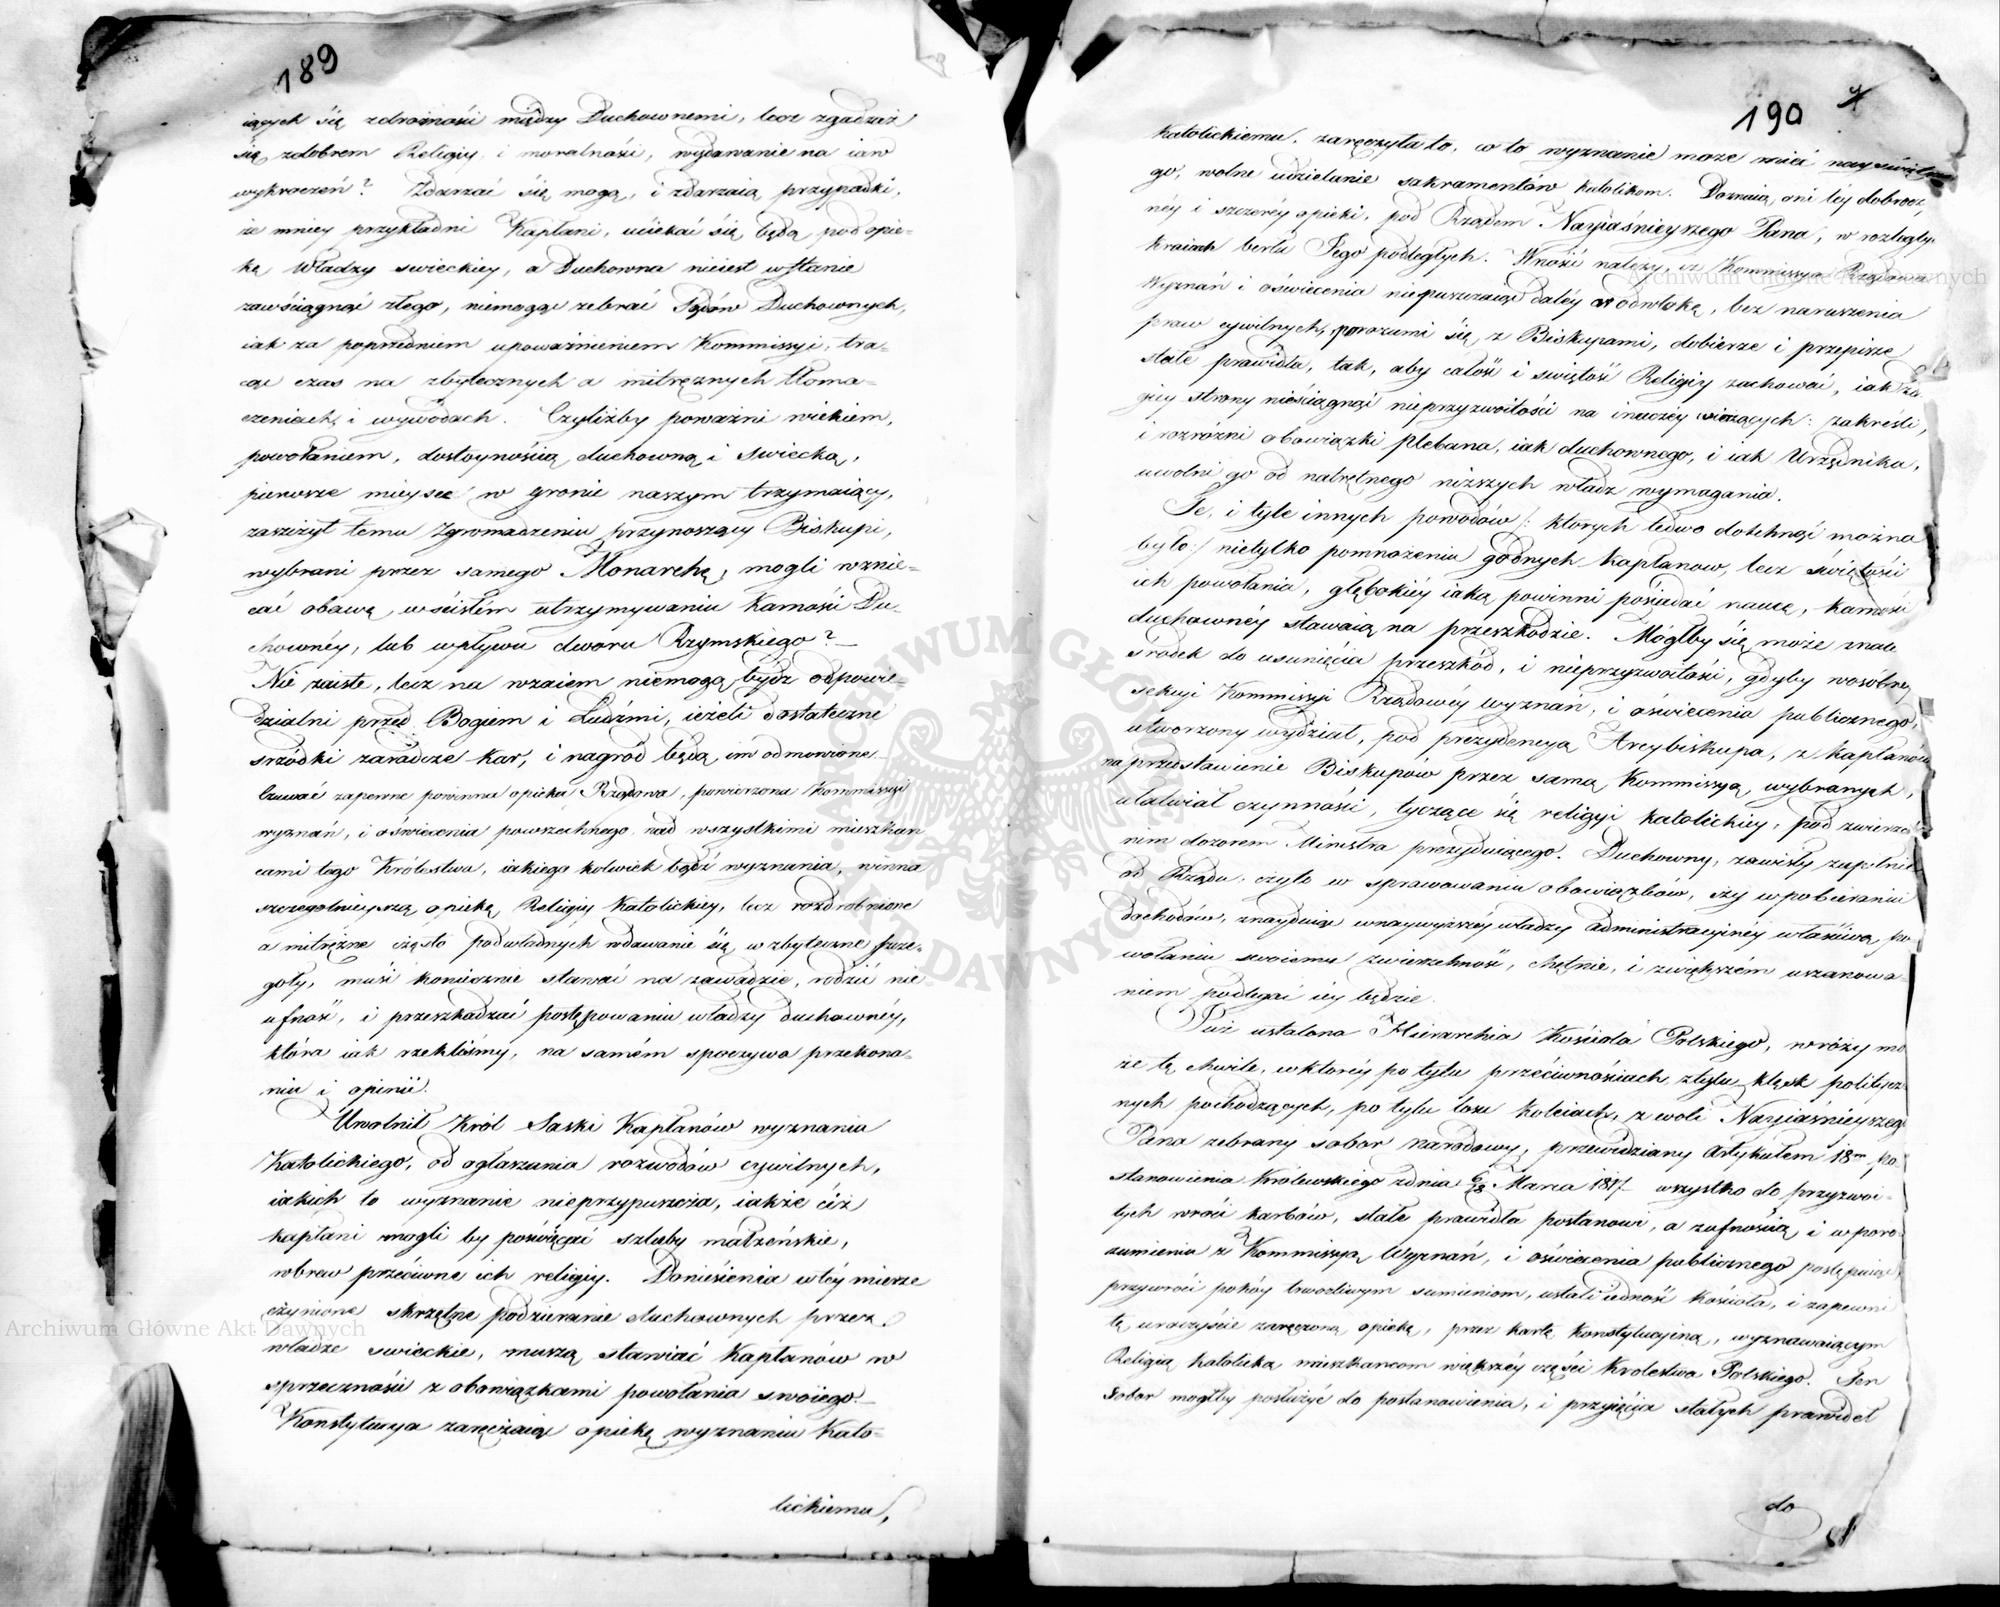 189
iących się zdrożności między Duchownemi, lecz zgadzaż
się z dobrem Religiy i moralności, wydawanie na iaw
wykroczeń? Zdarzać się mogą, i zdarzaią przypadki,
że mniey przykładni Kapłani, uciekać się będą pod opie-
kę Władzy swieckiey, a Duchowna nieiest w stanie
zawściągnąć złego, niemogąc zebrać Sądów Duchownych,
iak za poprzedniem upoważnieniem Kommissyi, tra-
cąc czas na zbytecznych a mitrężnych tłoma-
czeniach i wywodach. Czyliżby poważni wiekiem,
powołaniem, dostoynością duchowną i swiecką,
pierwsze mieysce w gronie naszym trzymaiący,
zaszczyt temu Zgromadzeniu przynoszący Biskupi,
wybrani przez samego Monarchę, mogli wznie-
cać obawę, w ścisłém utrzymywaniu Karności Du-
chownéy, lub wpływu dworu Rzymskiego? —
Nie zaiste, lecz na wzaiem niemogą bydź odpowie-
dzialni przed Bogiem i Ludźmi, ieżeli dostateczne
srzódki zaradcze kar, i nagród będą im odmowione.—
Czuwać zapewne powinna opieka Rządowa, powierzona Kommissyi
wyznań, i oświecenia powszechnego, nad wszystkimi mieszkań
cami tego Królestwa, iakiego kolwiek bądź wyznania, winna
szczegolnieyszą opiekę Religiy Katolickiey, lecz rozdrobnione
a mitrężne często podwładnych wdawanie się w zbyteczne szcze-
goły, musi koniecznie stawać na zawadzie, rodzić nie
ufność, i przeszkadzać postępowaniu władzy duchownéy,
która iak rzekliśmy, na samém spoczywa przekona-
niu i opinii.
Uwolnił Król Saski Kapłanów wyznania
Katolickiego, od ogłaszania rozwodów cywilnych,
iakich to wyznanie nieprzypuszcza, iakże ciż
kapłani mogli by poświęcać szluby małżeńskie,
wbrew przeciwne ich religiy. Doniesienia w téy mierze
czynione skrzętne podzieranie duchownych przez
władze swieckie, muszą stawiać Kapłanów w
sprzeczności z obowiązkami powołania swoiego.—
Konstytucya zaręczaiąc opiekę wyznaniu Kato-
lickiemu,
190
katolickiemu, zaręczyła to, co to wyznanie może mieć
go, wolne udzielanie sakramentów katolikom. Doznaią oni téy dobroczy
néy i szczeréy opieki, pod Rządem Nayiaśnieyszego Pana, w rozległy
kraiach berłu Jego podległych. Wnosić należy, iż Kommissya Rządowa
Wyznań i oświecenia niepuszczaiąc daléy w odwłokę, bez naruszenia
praw cywilnych, porozumi się z Biskupami, dobierze i przepisze
stałe prawidła, tak, aby całość i swiętość Religiy zachować, iak z dru
giey strony nieściągnąć nieprzyzwoitości na inaczéy wierzących: zakreśli,
i rozróżni obowiązki plebana, iak duchownego, i iak Urzędnika,
uwolni go od natrętnego niższych władz wymagania.
Te, i tyle innych powodów /: których ledwo dotchnąć można
było:/ nietylko pomnożeniu godnych Kapłanow, lecz świętości
ich powołania, głębokiéy iaką powinni posiadać nauce, karności
duchownéy stawaią na przeszkodzie. Mógłby się może znale
środek do usunięcia przeszkód, i nieprzyzwoitości, gdyby w osóbney
sekcyi Kommissyi Rządowéy wyznań, i oświecenia publicznego,
utworzony wydział, pod prezydencyą Arcybiskupa, z kapłanów
na przedstawienie Biskupów przez samą Kommissyą, wybranych,
ułatwiał czynności, tyczące się religyi katolickiey, pod zwierzch
nim dozorem Ministra prezyduiącego. Duchowny, zawisły zupełnie
od Rządu, czyto w sprawowaniu obowiązków, czy w pobieraniu
dochodów, znayduiąc w naywyższéy władzy administracyinéy właściwą po
wołaniu swoiemu zwierzchność, chętnie, i zwiększém uszanowa
niem podlegać iéy będzie.
Już ustalona Hierarchia Kościoła Polskiego, wróży mo
że tę chwile, w któréy po tylu przeciwnościach z tylu klęsk politycz
nych pochodzących, po tylu losu koleiach, z woli Nayiaśnieyszeg
Pana zebrany sobor narodowy, przewidziany Artykułem 18m po-
stanowienia Królewskiego z dnia 6/18 Marca 1817 wszystko do przyzwoi-
tych wróci karbów, stałe prawidła postanowi, a zufnością i w poro-
zumieniu z Kommissyą Wyznań, i oświecenia publicznego postępuiąc,
przywróci pokóy trwożliwym sumieniom, ustali iedność kościoła, i zapewni
tę uroczyście zaręczoną opiekę, przez kartę konstytucyiną, wyznawaiącym
Religią katolicką mieszkancom większéy części Królestwa Polskiego. Ten
Sobor mogłby posłużyć do postanowienia, i przyięcia stałych prawideł
do
Archiwum Główne Akt Dawnych
Archiwum Główne Akt Dawnych
ARCHIWUM GŁÓWNE AKT DAWNYCH